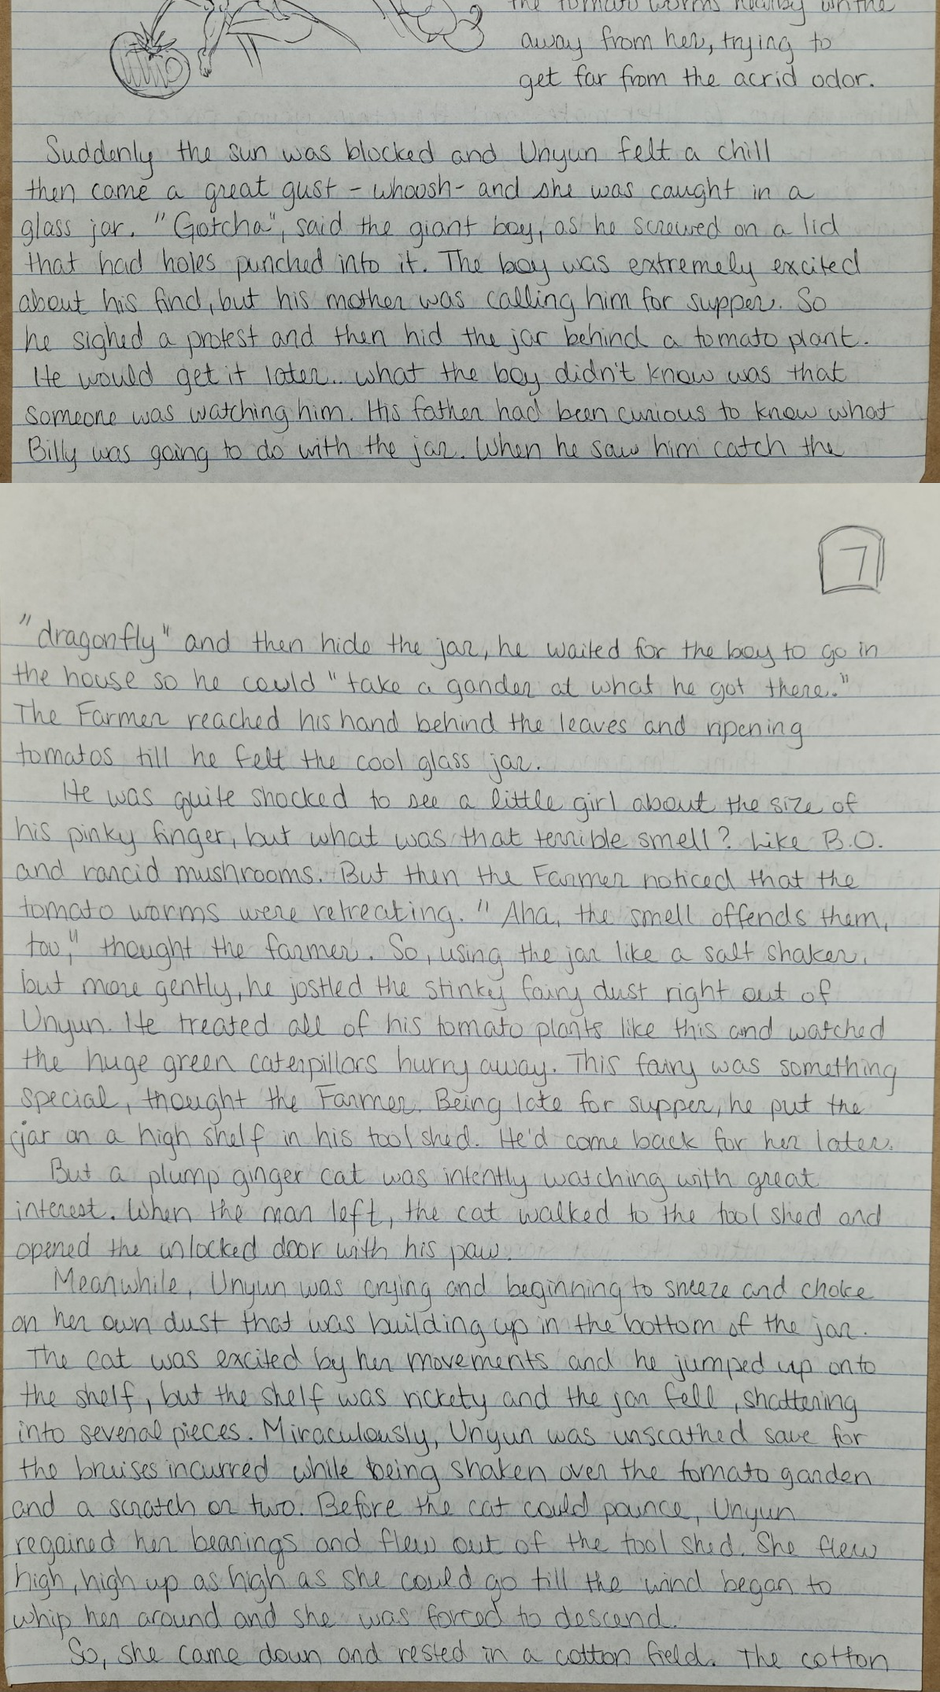 the tomato worms nearby writhe
away from her, trying to
get far from the acrid odor.
Suddenly the sun was blocked and Unyun felt a chill
then came a great gust - whoosh - and she was caught in a
glass jar. "Gotcha", said the giant boy, as he screwed on a lid
that had holes punched into it. The boy was extremely excited
about his find, but his mother was calling him for supper. So
he sighed a protest and then hid the jar behind a tomato plant.
He would get it later.. what the boy didn't know was that
someone was watching him. His father had been curious to know what
Billy was going to do with the jar. When he saw him catch the
7
"dragonfly" and then hide the jar, he waited for the boy to go in
the house so he could "take a gander at what he got there."
The Farmer reached his hand behind the leaves and ripening
tomatos till he felt the cool glass jar.
He was quite shocked to see a little girl about the size of
his pinky finger, but what was that terrible smell? Like B.O.
and rancid mushrooms. But then the Farmer noticed that the
tomato worms were retreating. "Aha, the smell offends them,
too," thought the farmer. So, using the jar like a salt shaker,
but more gently, he jostled the stinky fairy dust right out of
Unyun. He treated all of his tomato plants like this and watched
the huge green caterpillars hurry away. This fairy was something
special, thought the Farmer. Being late for supper, he put the
jar on a high shelf in his tool shed. He'd come back for her later.
But a plump ginger cat was intently watching with great
interest. When the man left, the cat walked to the tool shed and
opened the unlocked door with his paw.
Meanwhile, Unyun was crying and beginning to sneeze and choke
on her own dust that was building up in the bottom of the jar.
The cat was excited by her movements and he jumped up onto
the shelf, but the shelf was rickety and the jar fell, shattering
into several pieces. Miraculously, Unyun was unscathed save for
the bruises incurred while being shaken over the tomato garden
and a scratch or two. Before the cat could pounce, Unyun
regained her bearings and flew out of the tool shed. She flew
high, high up as high as she could go till the wind began to
whip her around and she was forced to descend.
So, she came down and rested in a cotton field. The cotton